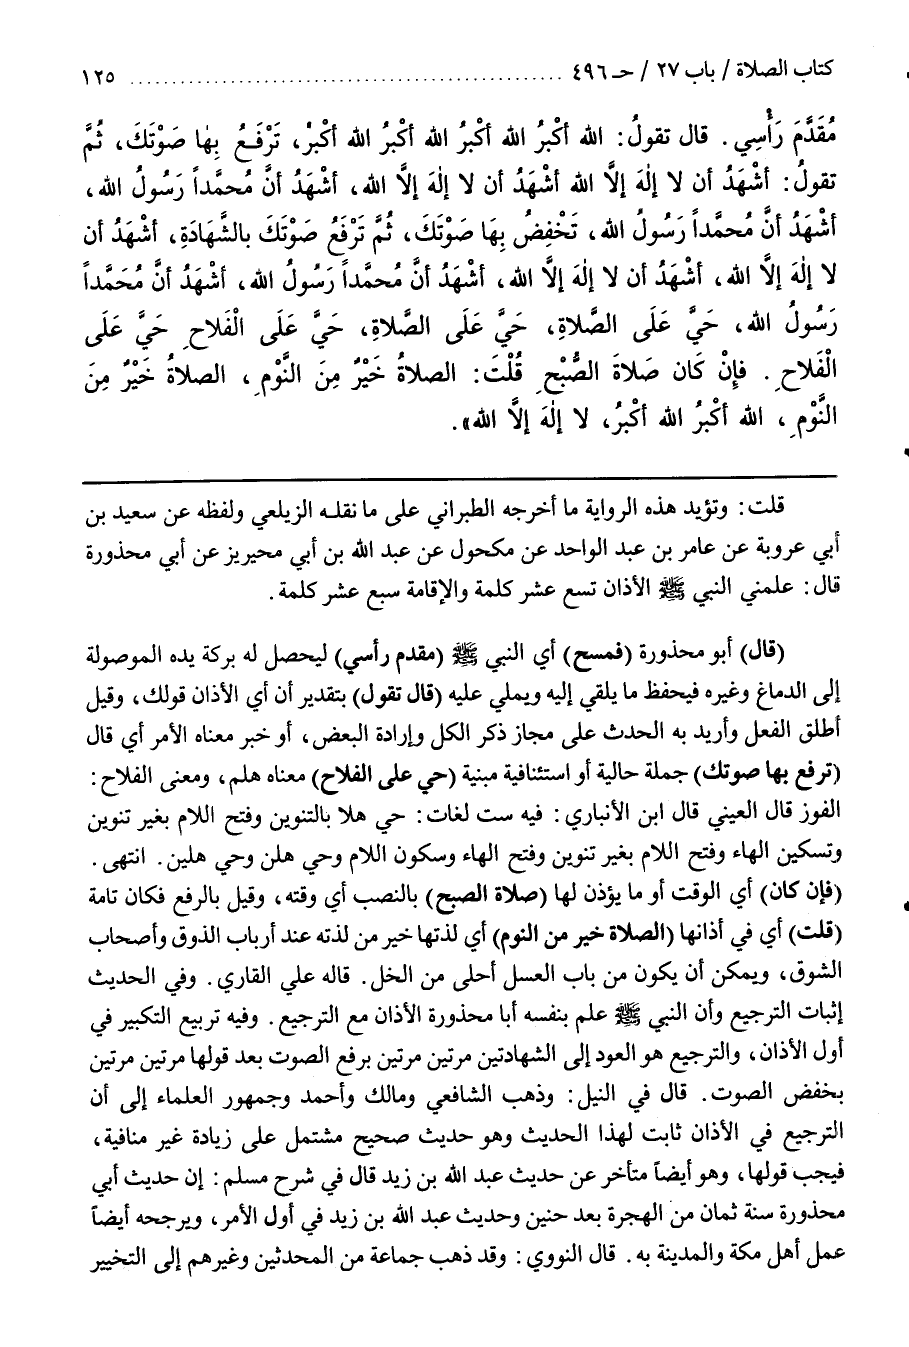 كتاب الصلاة / باب ٢٧ / حـ ٤٩٦ ........................................................ ١٢٥
مُقَدَّمَ رَأْسِي. قال تقولُ: الله أكْبرُ الله أكْبرُ الله أكْبرُ الله أكْبرُ، تَرْفَعُ بِهٰا صَوْتَكَ، ثُمَّ
تقولُ: أشْهَدُ أن لا إلٰهَ إلاَّ الله أشْهَدُ أن لا إلٰهَ إلاَّ الله، أشْهَدُ أنَّ مُحمَّداً رَسُولُ الله،
أشْهَدُ أنَّ مُحمَّداً رَسُولُ الله، تَخْفِضُ بِهَا صَوْتَكَ، ثُمَّ تَرْفَعُ صَوْتَكَ بالشَّهَادَةِ، أشْهَدُ أن
لا إلٰهَ إلاَّ الله، أشْهَدُ أن لا إلٰهَ إلاَّ الله، أشْهَدُ أنَّ مُحمَّداً رَسُولُ الله، أشْهَدُ أنَّ مُحَمَّداً
رَسُولُ الله، حَيَّ عَلَى الصَّلاةِ، حَيَّ عَلَى الصَّلاةِ، حَيَّ عَلَى الْفَلاحِ حَيَّ عَلَى
الْفَلاحِ. فإنْ كَان صَلاةَ الصُّبْحِ قُلْتَ: الصلاةُ خَيْرٌ مِنَ النَّوْمِ، الصلاةُ خَيْرٌ مِنَ
النَّوْمِ، الله أكْبَرُ الله أكْبَرُ، لا إلٰهَ إلاَّ الله».
قلت: وتؤيد هذه الرواية ما أخرجه الطبراني على ما نقله الزيلعي ولفظه عن سعيد بن
أبي عروبة عن عامر بن عبد الواحد عن مكحول عن عبد الله بن أبي محيريز عن أبي محذورة
قال: علمني النبي ﷺ الأذان تسع عشر كلمة والإقامة سبع عشر كلمة.
(قال) أبو محذورة (فمسح) أي النبي ﷺ (مقدم رأسي) ليحصل له بركة يده الموصولة
إلى الدماغ وغيره فيحفظ ما يلقي إليه ويملي عليه (قال تقول) بتقدير أن أي الأذان قولك، وقيل
أطلق الفعل وأريد به الحدث على مجاز ذكر الكل وإرادة البعض، أو خبر معناه الأمر أي قال
(ترفع بها صوتك) جملة حالية أو استئنافية مبنية (حي على الفلاح) معناه هلم، ومعنى الفلاح:
الفوز قال العيني قال ابن الأنباري: فيه ست لغات: حي هلا بالتنوين وفتح اللام بغير تنوين
وتسكين الهاء وفتح اللام بغير تنوين وفتح الهاء وسكون اللام وحي هلن وحي هلين. انتهى.
(فإن كان) أي الوقت أو ما يؤذن لها (صلاة الصبح) بالنصب أي وقته، وقيل بالرفع فكان تامة
(قلت) أي في أذانها (الصلاة خير من النوم) أي لذتها خير من لذته عند أرباب الذوق وأصحاب
الشوق، ويمكن أن يكون من باب العسل أحلى من الخل. قاله علي القاري. وفي الحديث
إثبات الترجيع وأن النبي ﷺ علم بنفسه أبا محذورة الأذان مع الترجيع. وفيه تربيع التكبير في
أول الأذان، والترجيع هو العود إلى الشهادتين مرتين مرتين برفع الصوت بعد قولها مرتين مرتين
بخفض الصوت. قال في النيل: وذهب الشافعي ومالك وأحمد وجمهور العلماء إلى أن
الترجيع في الأذان ثابت لهذا الحديث وهو حديث صحيح مشتمل على زيادة غير منافية،
فيجب قولها، وهو أيضاً متأخر عن حديث عبد الله بن زيد قال في شرح مسلم: إن حديث أبي
محذورة سنة ثمان من الهجرة بعد حنين وحديث عبد الله بن زيد في أول الأمر، ويرجحه أيضاً
عمل أهل مكة والمدينة به. قال النووي: وقد ذهب جماعة من المحدثين وغيرهم إلى التخيير